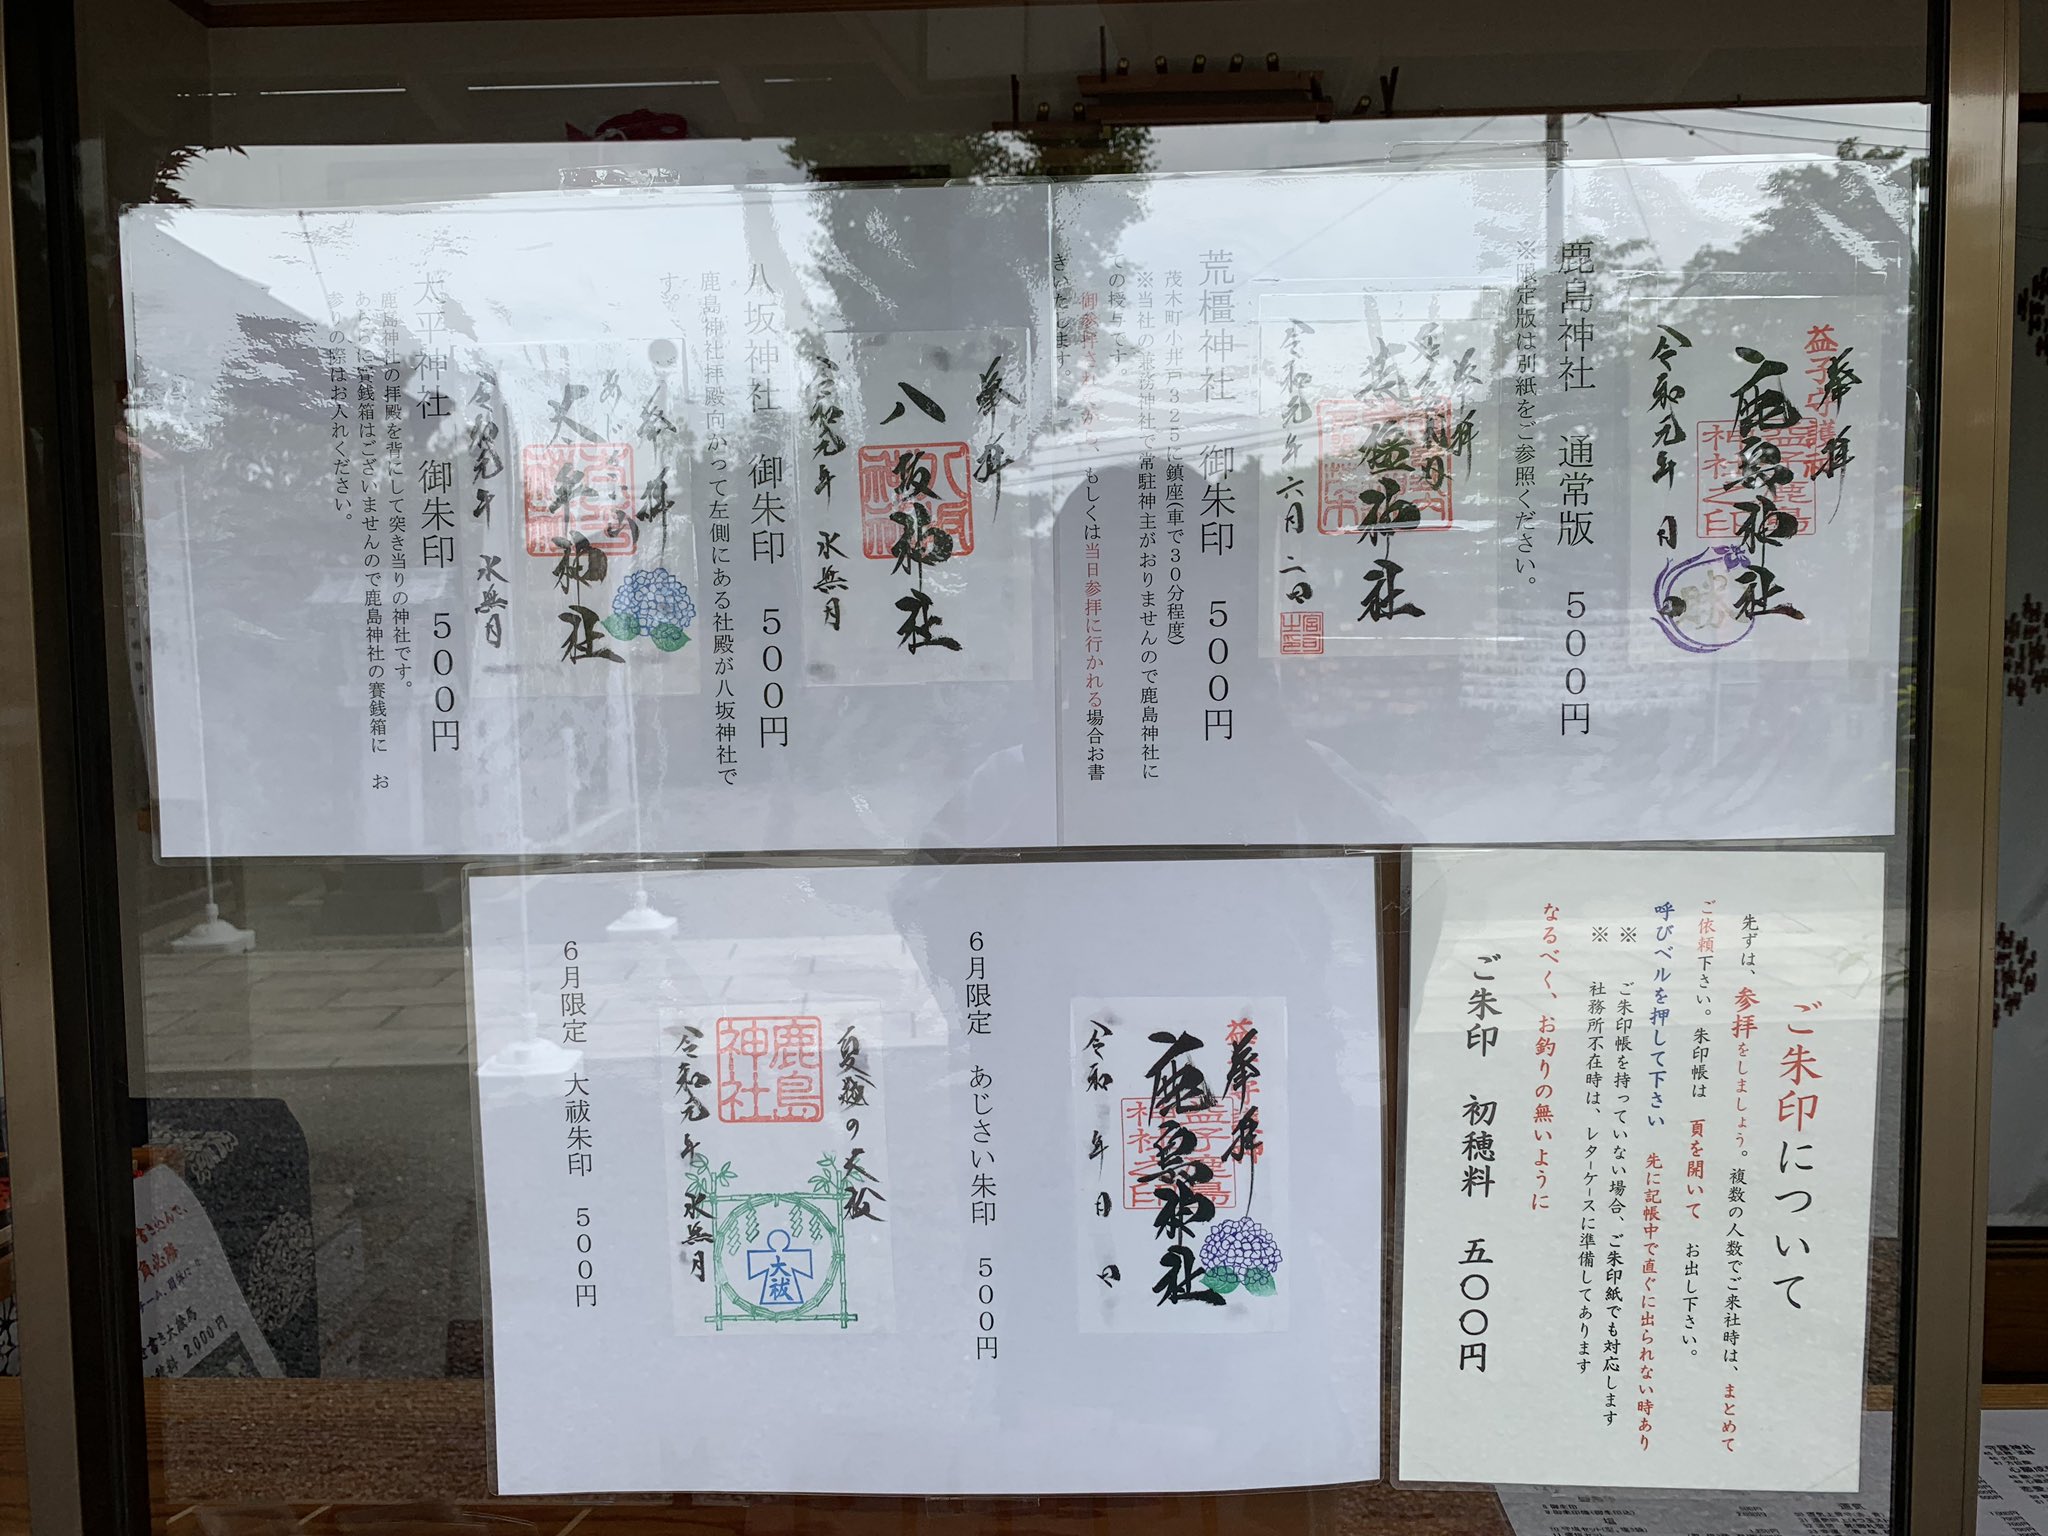 奉拝
益子守護神
益子鹿島神社之印
鹿島神社
令和元年 月 日
鹿島神社 通常版 500円
※限定版は別紙をご参照ください。
奉拝
荒橿神社
令和元年六月二日
宮司之印
荒橿神社 御朱印 500円
茂木町小井戸325に鎮座(車で30分程度)
※当社の兼務神社で常駐神主がおりませんので鹿島神社に
ての授与です。
もしくは当日参拝に行かれる場合お書
きいたします。
奉拝
八坂神社
八坂神社
令和元年 水無月
八坂神社 御朱印 500円
鹿島神社拝殿向かって左側にある社殿が八坂神社で
す。
奉拝
太平神社
令和元年 水無月
太平神社 御朱印 500円
鹿島神社の拝殿を背にして突き当りの神社です。
あちらに賽銭箱はございませんので鹿島神社の賽銭箱に お
参りの際はお入れください。
ご朱印について
先ずは、参拝をしましょう。複数の人数でご来社時は、まとめて
ご依頼下さい。朱印帳は 頁を開いて お出し下さい。
呼びベルを押して下さい 先に記帳中で直ぐに出られない時あり
※ ご朱印帳を持っていない場合、ご朱印紙でも対応します
※ 社務所不在時は、レターケースに準備してあります
なるべく、お釣りの無いように
ご朱印 初穂料 五〇〇円
奉拝
益子鹿島神社之印
鹿島神社
令和 年 月 日
6月限定 あじさい朱印 500円
夏越の大祓
鹿島神社
大祓
令和元年 水無月
6月限定 大祓朱印 500円
2,000円